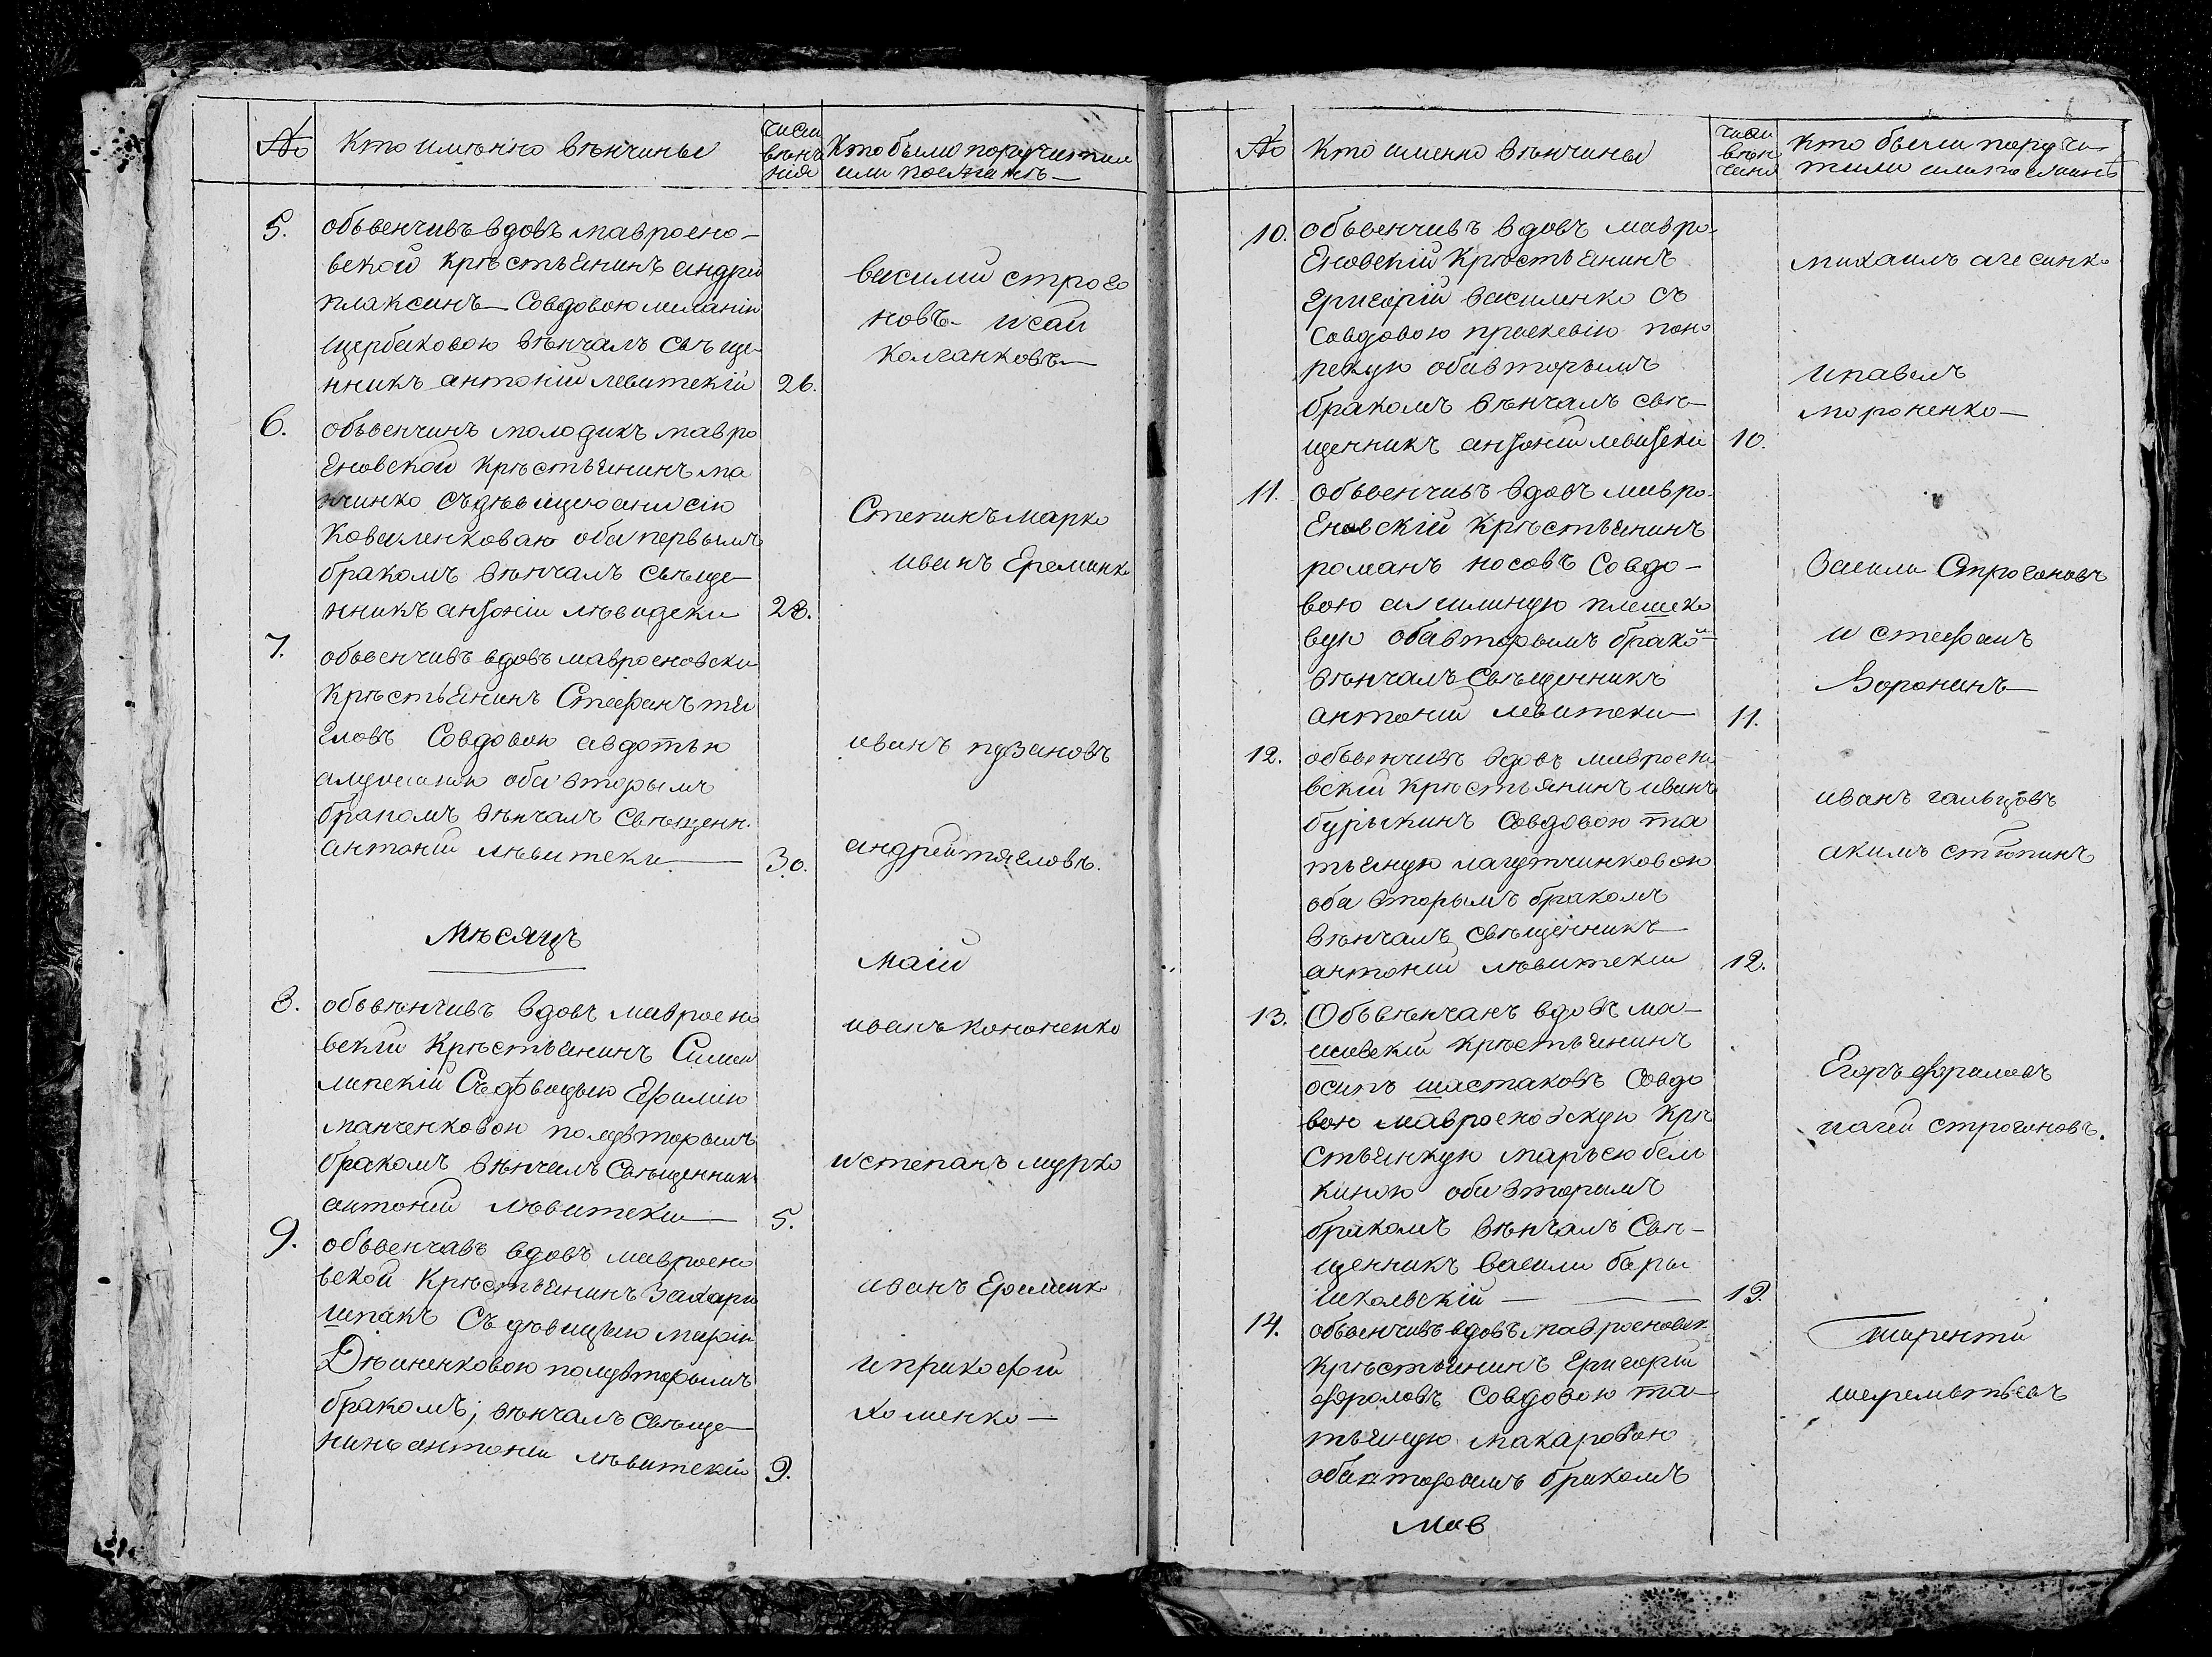 № Кто имѣнно вѣнчины числ вѣнч ния Кто были поручители
или посягатъ
5. обьвенчивъ вдовъ мавроено-
вской крѣстьянинъ андрѣи
плаксинъ Совдовою меланiи
щербаковою вѣнчалъ свѣще-
нникъ антонiй левитскiй 26.
василий строго
новъ исаи
Колганковъ
6. обьвенчинъ молодикъ мавро
Еновской крѣстьянинъ ма
нчинко съдѣвицею анисiю
Коваленковаю оба первымъ
бракомъ вѣнчалъ свѣще-
нникъ антонiи лѣвидски 28.
Степинъ марко
иванъ Ереминко
7. обьвенчивъ вдовъ мавроеновски
Крѣстьянинъ Стефанъ тя
гловъ Совдовою авдотью
оба вторымъ
бракомъ вѣнчалъ Свѣщенн.
антонiи лѣвитски 30.
иванъ пузановъ
андрей тягловъ.
Мѣсяцъ маiй
8. обьвѣнчивъ вдовъ мавроено
вскiи Крѣстьянинъ Симеи
липскiй Съдѣвицею Ефимiю
манченковою полувторымъ
бракомъ вѣнчилъ Свѣщенникъ
антонiй лѣвитски 5.
иванъ кононенко
истепанъ мурко
9. обьвенчавъ вдовъ мавроено
вской Крѣстьянинъ Захари
шпакъ Съ дѣвицею марiи
Дѣиненковою полувторымъ
бракомъ; вѣнчалъ свѣще-
никъ антонiи лѣвитскiй 9.
иванъ Ереминко
ипрокофiй
хоменко
№ Кто имено вѣнчины числ вѣн чения Кто были поручи-
тили илипосяинъ
10. обьвенчивъ вдовъ мавро-
Еновскiй Крѣстьянинъ
григорiй василенко съ
Совдовою прасковiю поно
рскую обавторымъ
бракомъ вѣнчалъ свѣ-
щенникъ антонiй левитски 10.
михаилъ
ипавелъ
мороненко
11. обьвенчивъ вдовъ мавро-
Еновскiй крѣстьянинъ
романъ носовъ Совдо-
вою акилиную плешко
вую обавторымъ бракомъ
вѣнчалъ Свѣщенникъ
антонiй левитски 11.
Васили Строгановъ
и стефанъ
Воронинъ
12. обьвенчивъ вдовъ мавроено
вскiй крѣстьянинъ иванъ
бурыкинъ Совдовою та
тьяную лагутчинковою
оба вторымъ бракомъ
вѣнчалъ свѣщенникъ
антонiй лѣвитскiи 12.
иванъ гальцовъ
акимъ стюпинъ
13. Обьвѣнчанъ вдовъ ма-
шивскiй крѣстьянинъ
осипъ шастаковъ Совдо
вою мавроеновскую крѣ
стьянкую марьею бели
киною оба вторымъ
бракомъ вѣнчалъ Свѣ-
щенникъ васили бары
школьскiй 19.
Егоръ фраловъ
исаiи строгановъ.
14. обьвенчивъ вдовъ мавроеновск.
крѣстьянинъ григорiй
фроловъ Совдовою та-
тьяную макаровою
обавторымъ бракомъ
тирентий
шереметьевъ